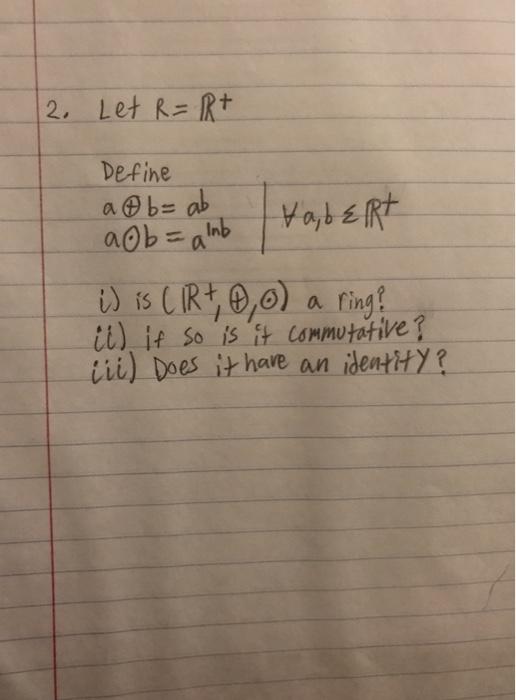 2. Let R = ℝ+
Define
a ⊕ b = ab
a ⊙ b = a^lnb
∀ a,b ∈ ℝ+
i) is (ℝ+, ⊕, ⊙) a ring?
ii) if so is it commutative?
iii) Does it have an identity?